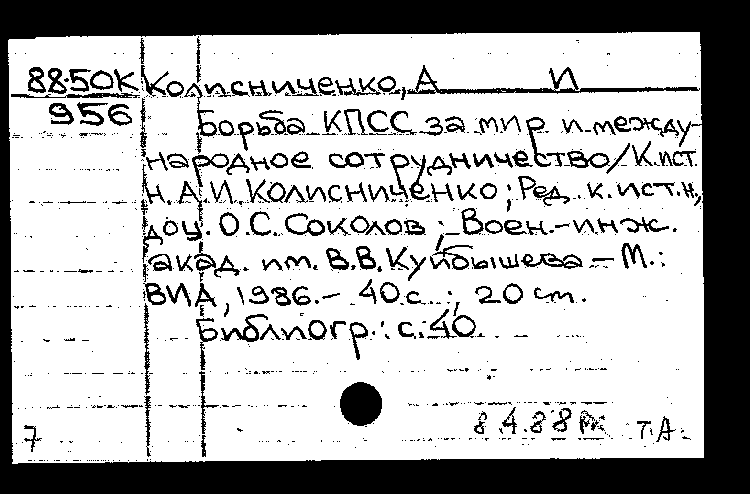 88-50К Колисниченко, А И
956 Борьба КПСС за мир и между-
народное сотрудничество/К.ист.
н. А.И. Колисниченко; Ред. к. ист. н.,
доц. О.С. Соколов; Воен.-инж.
акад. им. В.В. Куйбышева – М.:
ВИА, 1986.– 40 с.; 20 см.
Библиогр.: с. 40.
8.4.88 Т.А.
7